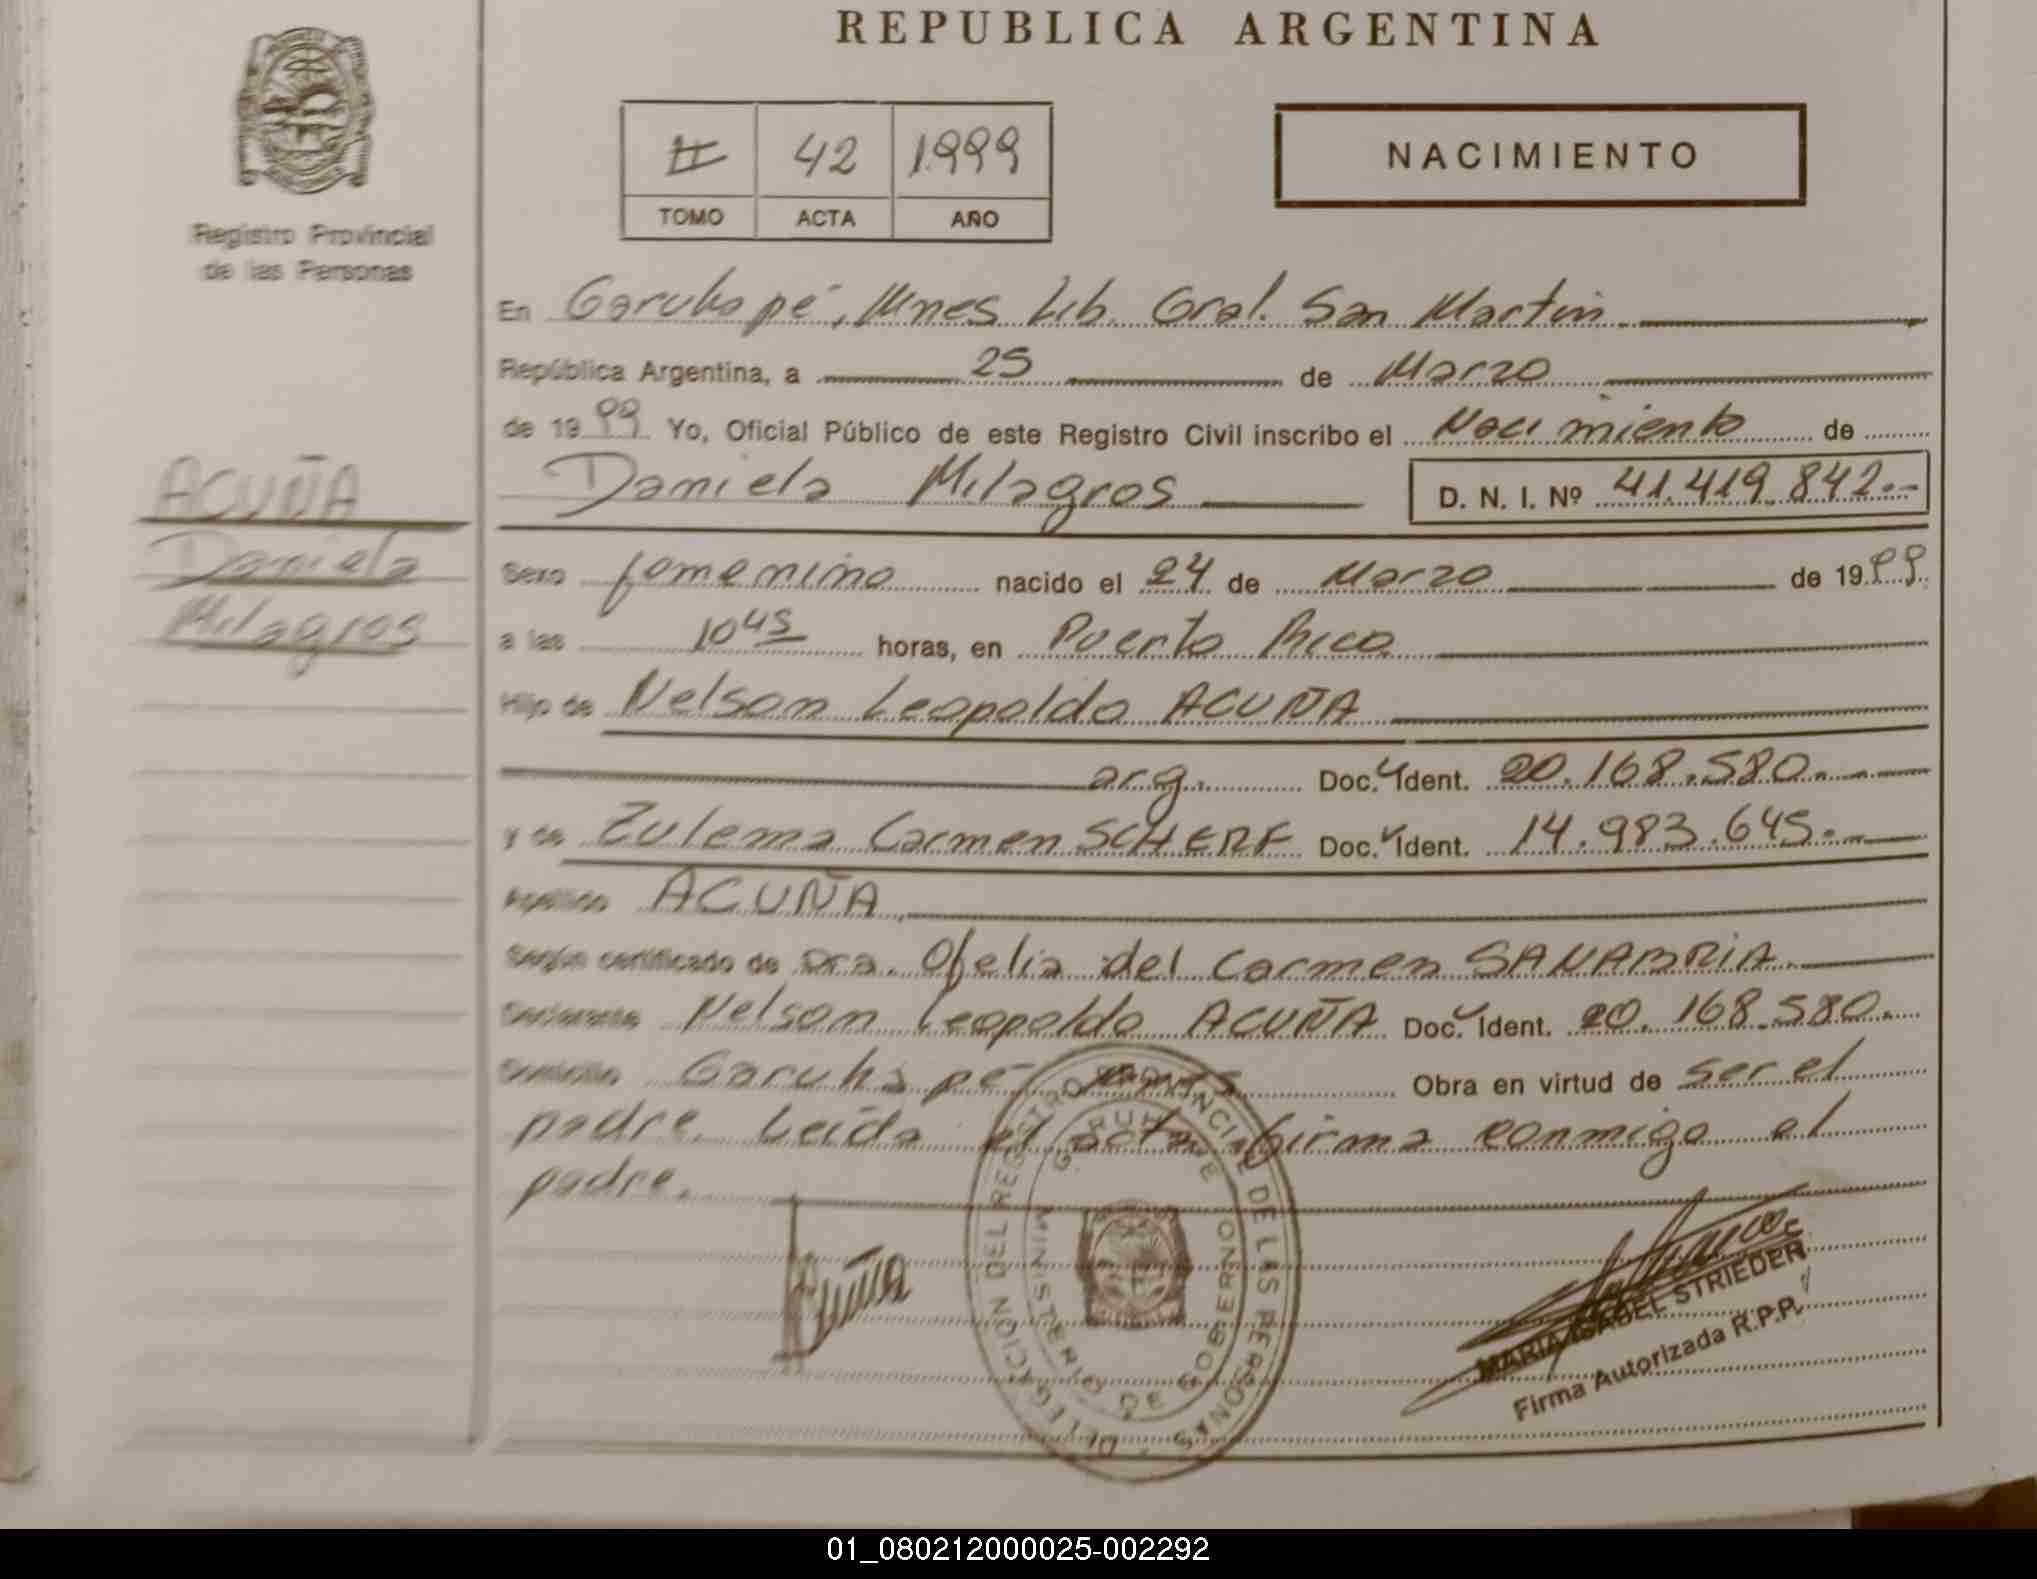 REPUBLICA ARGENTINA
II 42 1999
TOMO ACTA AÑO
NACIMIENTO
Registro Provincial
de las Personas
ACUÑA
Daniela
Milagros
En Garuhapé, Mnes Lib. Gral. San Martín
República Argentina, a 25 de Marzo
de 1999 Yo, Oficial Público de este Registro Civil inscribo el Nacimiento de
Daniela Milagros D. N. I. Nº 41.419.842.-
Sexo femenino nacido el 24 de Marzo de 1999
a las 10 45 horas, en Puerto Rico
Hijo de Nelson Leopoldo ACUÑA
arg. Doc. Ident. 20.168.580.
y de Zulema Carmen SCHERF Doc. Ident. 14.983.645.-
Apellido ACUÑA
Según certificado de Dra. Ofelia del Carmen SANABRIA
Declarante Nelson Leopoldo ACUÑA Doc. Ident. 20.168.580.
Domicilio Garuhapé Mnes Obra en virtud de ser el
padre. Leída el acta firma conmigo el
padre.
Acuña
DELEGACION DEL REGISTRO PROVINCIAL DE LAS PERSONAS
GARUHAPE
MINISTERIO DE GOBIERNO
MARIA ISABEL STRIEDER
Firma Autorizada R.P.P.
01_080212000025-002292